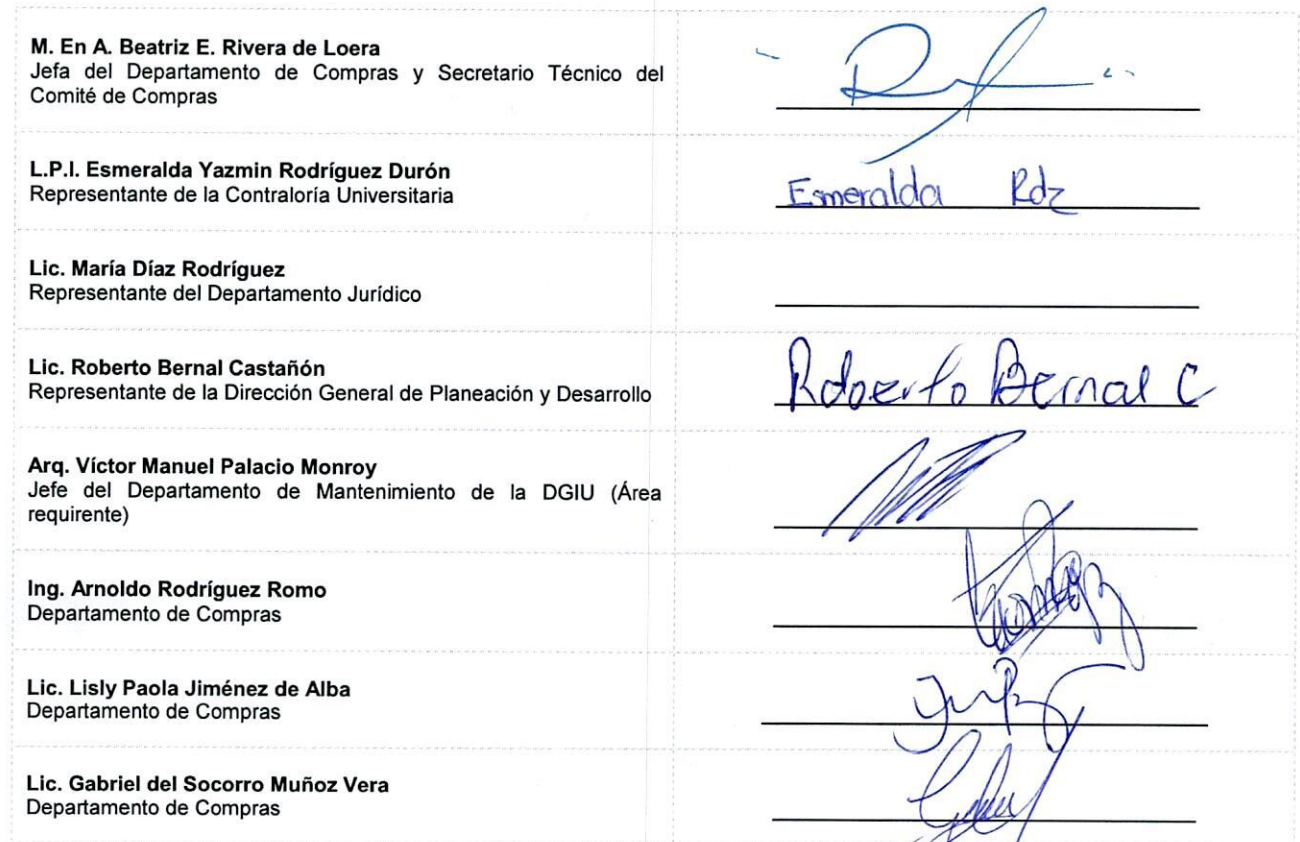 M. En A. Beatriz E. Rivera de Loera
Jefa del Departamento de Compras y Secretario Técnico del
Comité de Compras
L.P.I. Esmeralda Yazmin Rodríguez Durón
Representante de la Contraloría Universitaria
Esmeralda Rdz
Lic. María Díaz Rodríguez
Representante del Departamento Jurídico
Lic. Roberto Bernal Castañón
Representante de la Dirección General de Planeación y Desarrollo
Roberto Bernal C
Arq. Víctor Manuel Palacio Monroy
Jefe del Departamento de Mantenimiento de la DGIU (Área
requirente)
Ing. Arnoldo Rodríguez Romo
Departamento de Compras
Lic. Lisly Paola Jiménez de Alba
Departamento de Compras
Lic. Gabriel del Socorro Muñoz Vera
Departamento de Compras